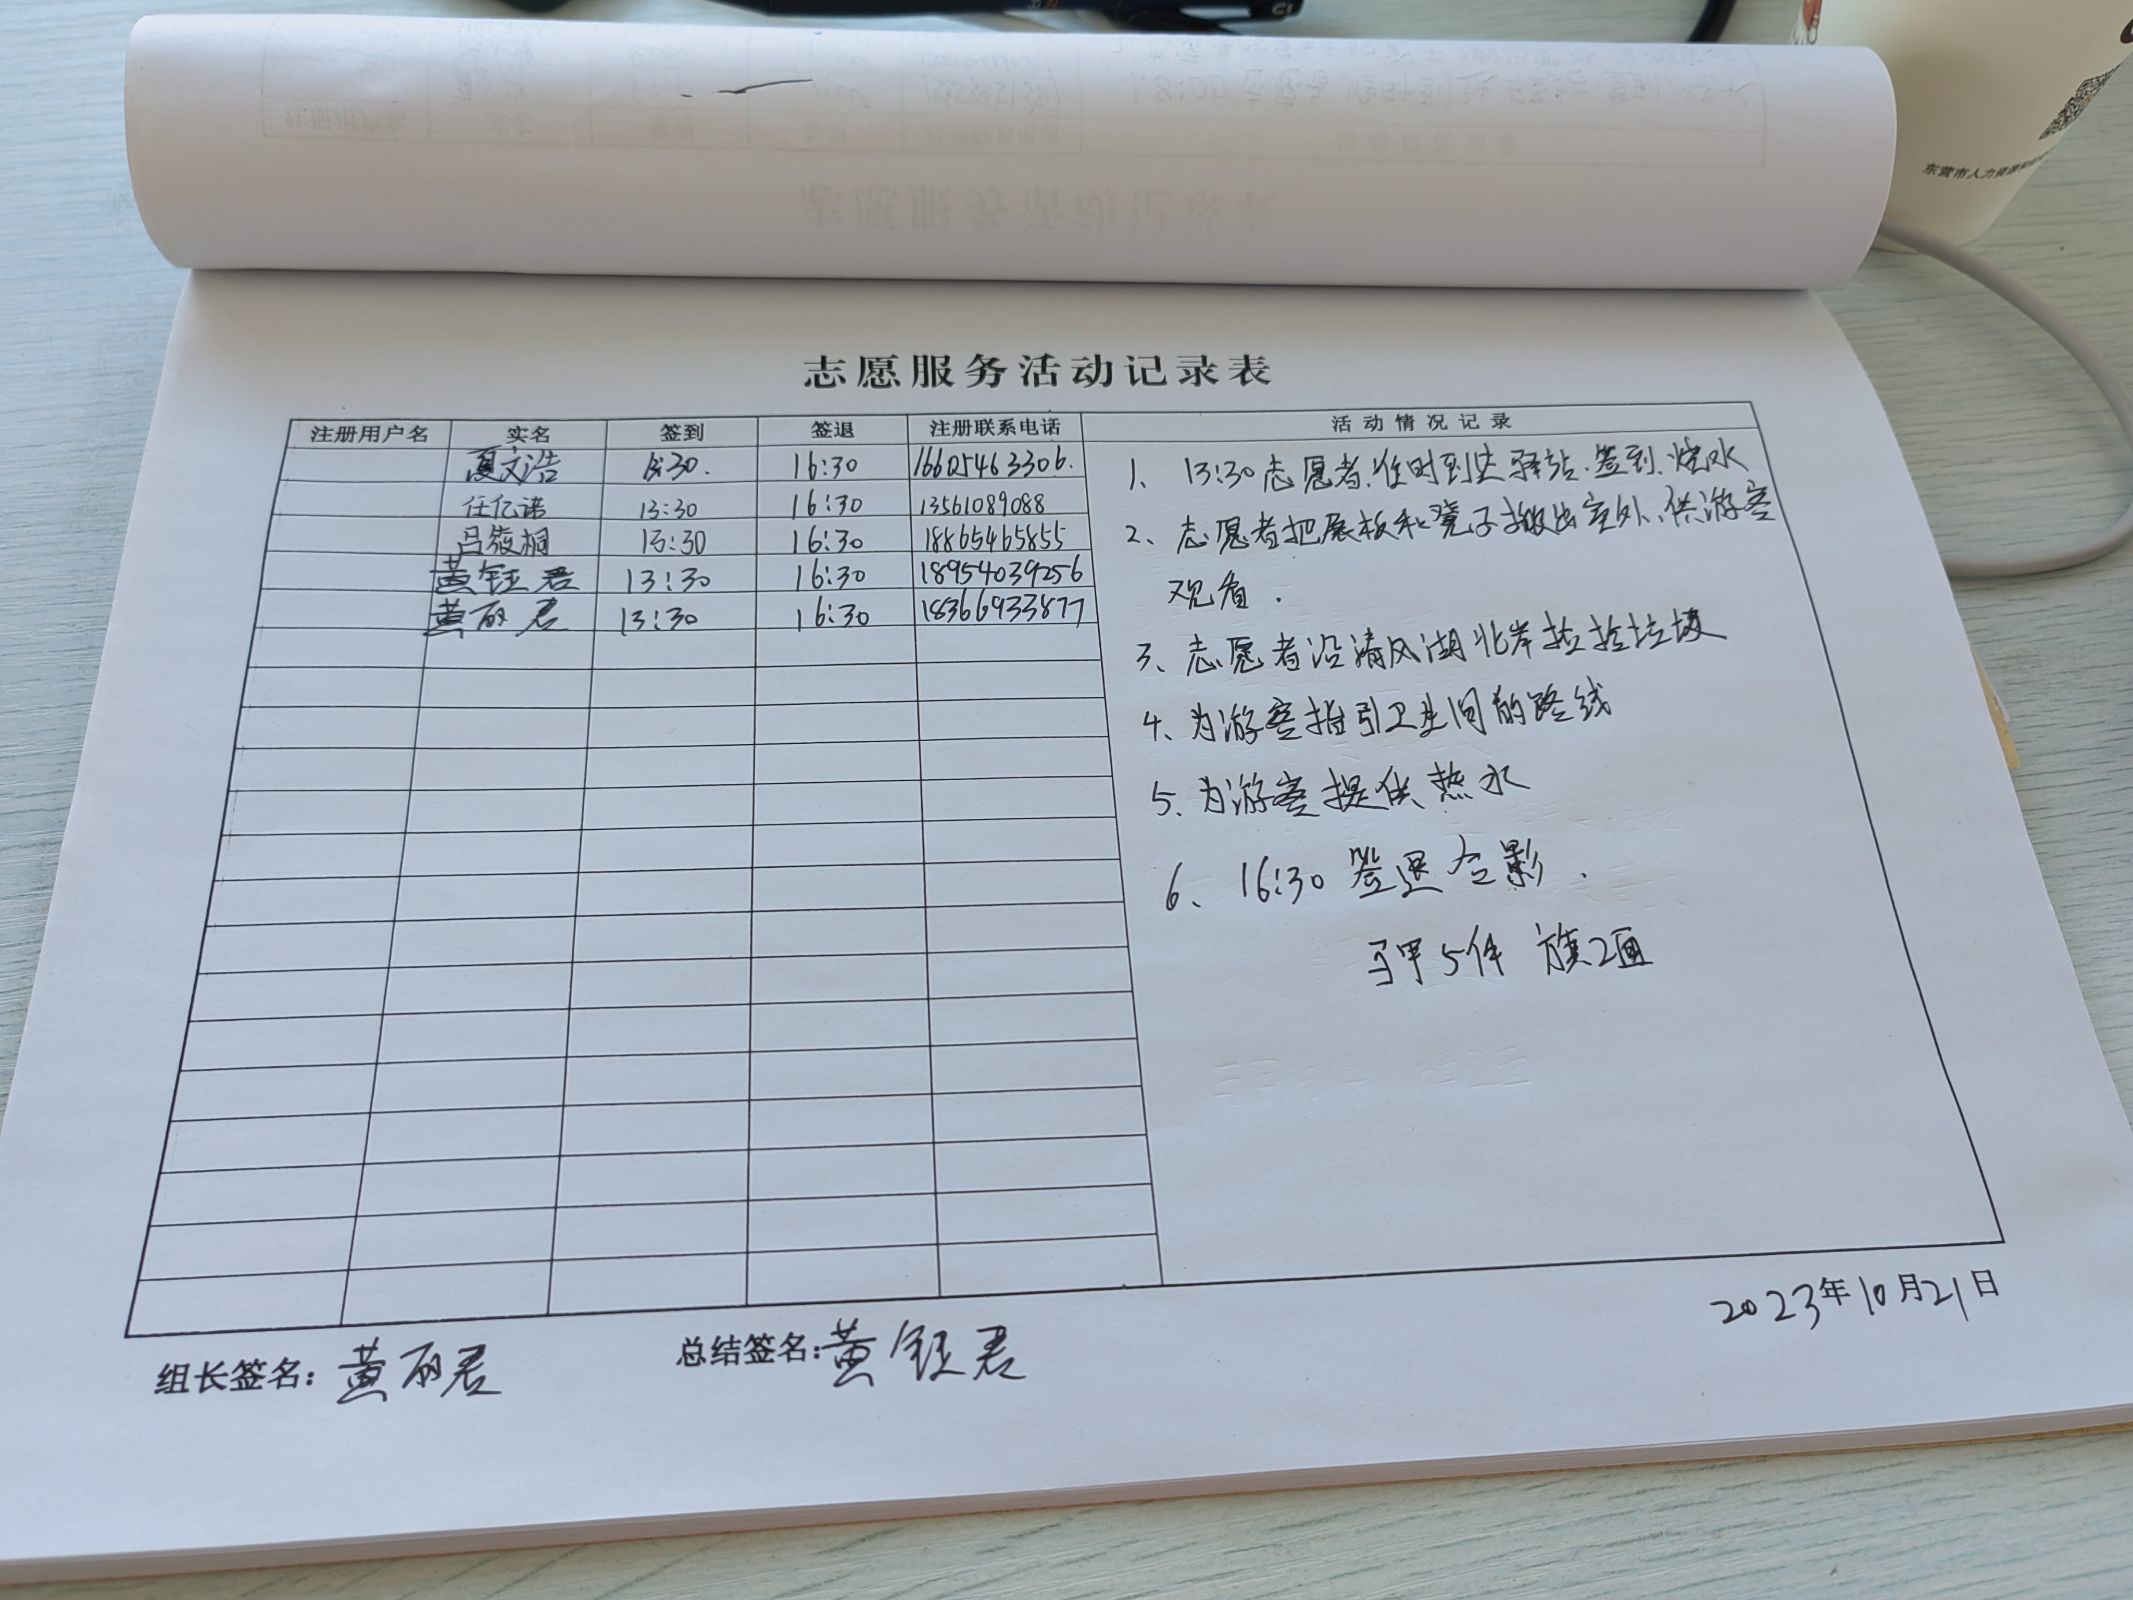 东营市人力资源
志愿服务活动记录表
注册用户名 实名 签到 签退 注册联系电话 活动情况记录
夏文浩 13:30. 16:30 16605463306.
任亿诺 13:30 16:30 13561089088
吕筱桐 13:30 16:30 18865465855
黄钰君 13:30 16:30 18954039256
黄丽君 13:30 16:30 18366933877
1、13:30志愿者准时到达驿站、签到、烧水
2、志愿者把展板和凳子搬出室外、供游客
观看.
3、志愿者沿清风湖北岸捡拾垃圾
4、为游客指引卫生间的路线
5、为游客提供热水
6、16:30签退合影.
马甲5件 旗2面
2023年10月21日
组长签名：黄丽君 总结签名：黄钰君